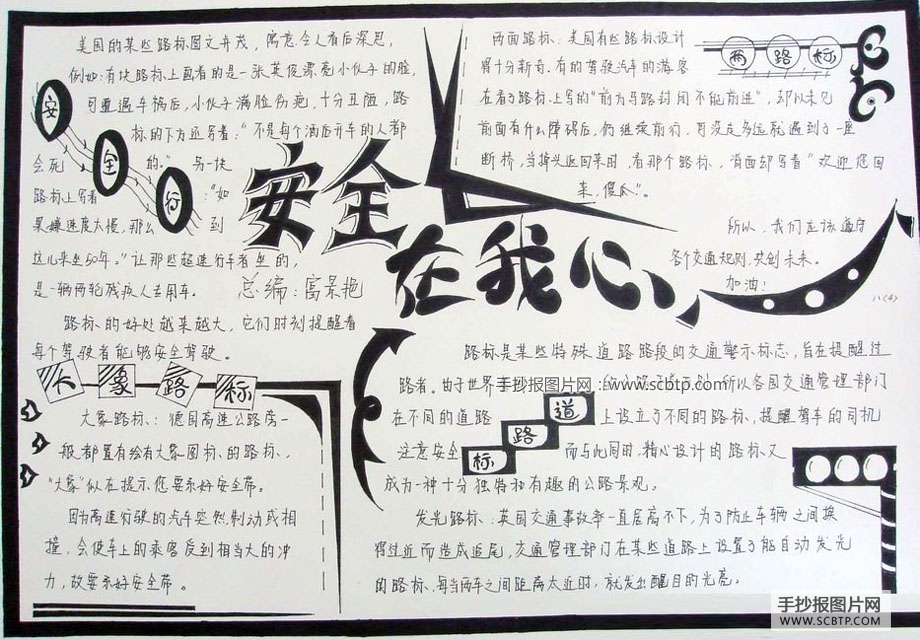 美国的某些路标图文并茂，寓意令人看后深思，
例如：有块路标上画着的是一张英俊漂亮小伙子的脸，
可重遇车祸后，小伙子满脸伤疤，十分丑陋，路
标的下方还写着："不是每个酒后开车的人都
会死的。"另一块
路标上写着："如
果嫌速度太慢，那么到
这儿来坐50年。"让那些超速行车者坐的，
是一辆两轮残疾人专用车。
路标的好处越来越大，它们时刻提醒着
每个驾驶者能够安全驾驶。
安全行
安全
在我心
总编：富景艳
两路标
两面路标：美国有些路标设计
得十分新奇。有的驾驶汽车的游客
在看了路标上写的"前方马路封闭不能前进"，却以未见
前面有什么障碍后，仍继续前行，可没走多远就遇到了一座
断桥，当掉头返回来时，看那个路标，背面却写着"欢迎您回
来，傻瓜！"。
所以，我们应该遵守
各个交通规则，共创未来。
加油！
八〈4〉
大象路标
大象路标：德国高速公路旁一
般都置有绘有大象图标的路标，
"大象"似在提示您要系好安全带。
因为高速行驶的汽车突然制动或相
撞，会使车上的乘客受到相当大的冲
力，故要系好安全带。
路标是某些特殊道路路段的交通警示标志，旨在提醒过
路者。由于世界
手抄报图片网：www.scbtp.com
所以各国交通管理部门
在不同的道路上设立了不同的路标，提醒驾车的司机
注意安全
而与此同时，精心设计的路标又
标路道
成为一种十分独特和有趣的公路景观。
发光路标：英国交通事故率一直居高不下，为了防止车辆之间挨
得过近而造成追尾，交通管理部门在某些道路上设置了能自动发光
的路标，每当两车之间距离太近时，就发出醒目的光亮。
手抄报图片网
WWW.SCBTP.COM